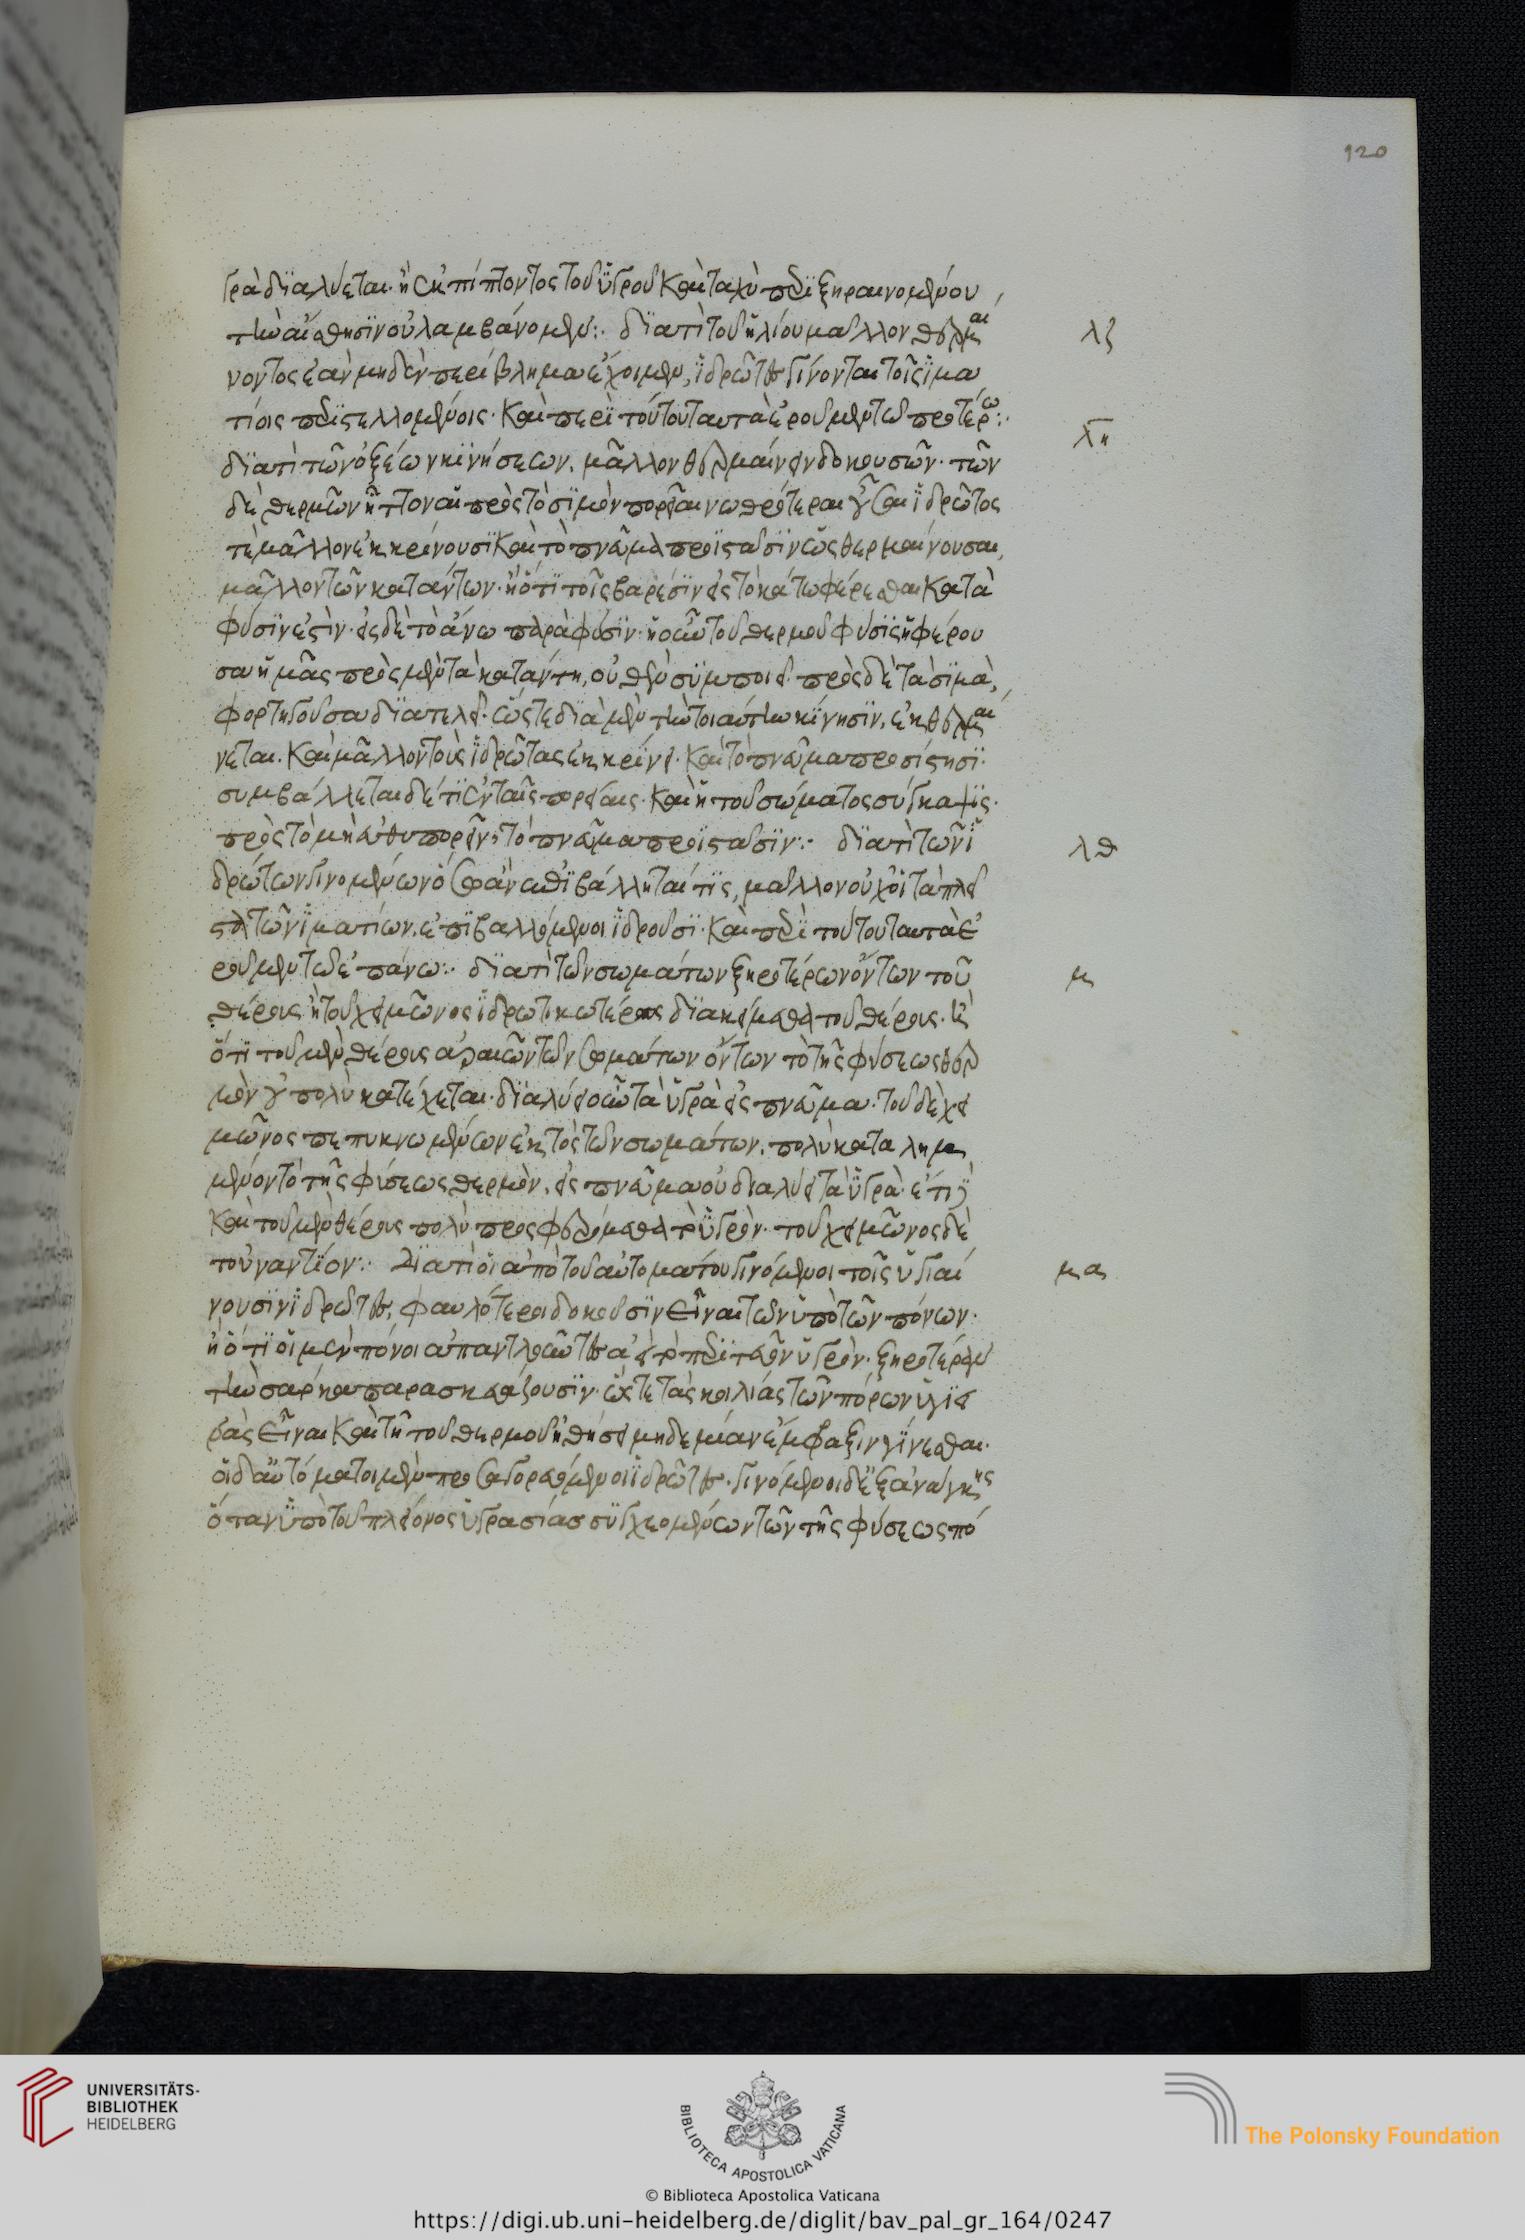 120
γρὰ διαλύεται· ἢ ἐκπίπτοντος τοῦ ὑγροῦ καὶ ταχὺ περιξηραινομένου,
τὴν αἴσθησιν οὐ λαμβάνομεν:· διατί τοῦ ἡλίου μᾶλλον θερμαί λζ
νοντος ἐὰν μηδὲν περίβλημα ἔχοιμεν, ἱδρῶτες γίνονται τοῖς ἱμα
τίοις περιστελλομένοις· καὶ περὶ τούτου ταυτὰ ἐροῦμεν τῷ προτέρω:·
διατί τῶν ὀξέων κινήσεων, μᾶλλον θερμαίνειν δοκουσῶν· τῶν λη
δὲ θερμῶν ἧττον αἱ πρὸς τὸ σιμὸν πορεῖαι νωθρότεραι οὖσαι ἱδρῶτος
τὲ μᾶλλον ἐκκρίνουσι καὶ τὸ πνεῦμα προϊστᾶσιν ὡς θερμαίνουσαι,
μᾶλλον τῶν κατάντων· ἢ ὅτι τοῖς βαρέσιν εἰς τὸ κάτω φέρεσθαι κατὰ
φύσιν ἐστίν· εἰς δὲ τὸ ἄνω παρὰ φύσιν· ἡ οὖν τοῦ θερμοῦ φύσις ἡ φέρου
σα ἡμᾶς πρὸς μὲν τὰ κατάντη, οὐθὲν συμποιεῖ· πρὸς δὲ τὰ σιμὰ,
φορτηγοῦσα διατελεῖ· ὥστε διὰ μὲν τὴν τοιαύτην κίνησιν, ἐκθερμαί
νεται· καὶ μᾶλλον τοὺς ἱδρῶτας ἐκκρίνει· καὶ τὸ πνεῦμα προσίστησι·
συμβάλλεται δέ τι ἐν ταῖς πορείαις· καὶ ἡ τοῦ σώματος σύγκαψις·
πρὸς τὸ μὴ εὐθυπορεῖν, τὸ πνεῦμα προϊστᾶσιν:· διατί τῶν ἱ λθ
δρώτων γινομένων ὅσα ἂν ἐπιβάλληταί τις, μᾶλλον οὐχ οἱ τὰ πλεῖ
στα τῶν ἱματίων, ἐπιβαλλόμενοι ἱδροῦσι· καὶ περὶ τούτου ταυτὰ ἐ
ροῦμεν τῷ ἐπάνω:· διατί τῶν σωμάτων ξηροτέρων ὄντων τοῦ μ
θέρους ἢ τοῦ χειμῶνος ἱδρωτικωτέρως διακείμεθα τοῦ θέρους· ἢ
ὅτι τοῦ μὲν θέρους ἀραιῶν τῶν σωμάτων ὄντων τὸ τῆς φύσεως θερ
μὸν οὐ πολὺ κατέχεται· διαλύει οὖν τὰ ὑγρὰ εἰς πνεῦμα· τοῦ δὲ χει
μῶνος πεπυκνωμένων ἐκτὸς τῶν σωμάτων, πολὺ καταλημ
μένον τὸ τῆς φύσεως θερμὸν, εἰς πνεῦμα οὐ διαλύει τὰ ὑγρά· ἔτι δὲ
καὶ τοῦ μὲν θέρους πολὺ προσφερόμεθα τὸ ὑγρόν· τοῦ χειμῶνος δὲ
τοὐναντίον:· Διατί οἱ ἀπὸ τοῦ αὐτομάτου γινόμενοι τοῖς ὑγιαί μα
νουσιν ἱδρῶτες, φαυλότεροι δοκοῦσιν εἶναι τῶν ὑπὸ τῶν πόνων·
ἢ ὅτι οἱ μὲν πόνοι ἀπαντλοῦντες ἀεὶ τὸ περιττὸν ὑγρόν· ξηροτέραν
τὴν σάρκα παρασκευάζουσιν· ὥστε τὰς κοιλίας τῶν πόρων ὑγιει
ρὰς εἶναι καὶ τῇ τοῦ θερμοῦ ἠθήσει μηδεμίαν ἔμφραξιν γίνεσθαι·
οἱ δ' αὐτόματοι μὲν προσαγορευόμενοι ἱδρῶτες· γινόμενοι δὲ ἐξ ἀνάγκης
ὅταν ὑπὸ τοῦ πλείονος ὑγρασίας συγχεομένων τῶν τῆς φύσεως πό
UNIVERSITÄTS-
BIBLIOTHEK
HEIDELBERG
BIBLIOTECA APOSTOLICA VATICANA
The Polonsky Foundation
© Biblioteca Apostolica Vaticana
https://digi.ub.uni-heidelberg.de/diglit/bav_pal_gr_164/0247